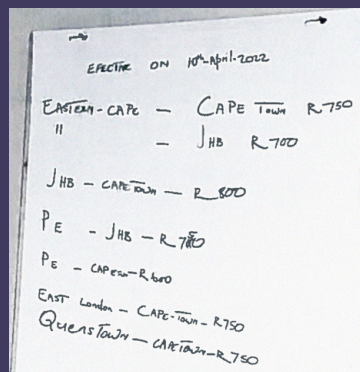 EFECTIVE ON 10th-April-2022
EASTERN-CAPE — CAPE TOWN R750
" — JHB R700
JHB — CAPETOWN — R800
PE — JHB — R
PE — R600
EAST London — CAPE-TOWN — R750
QUENSTOWN — CAPETOWN — R750